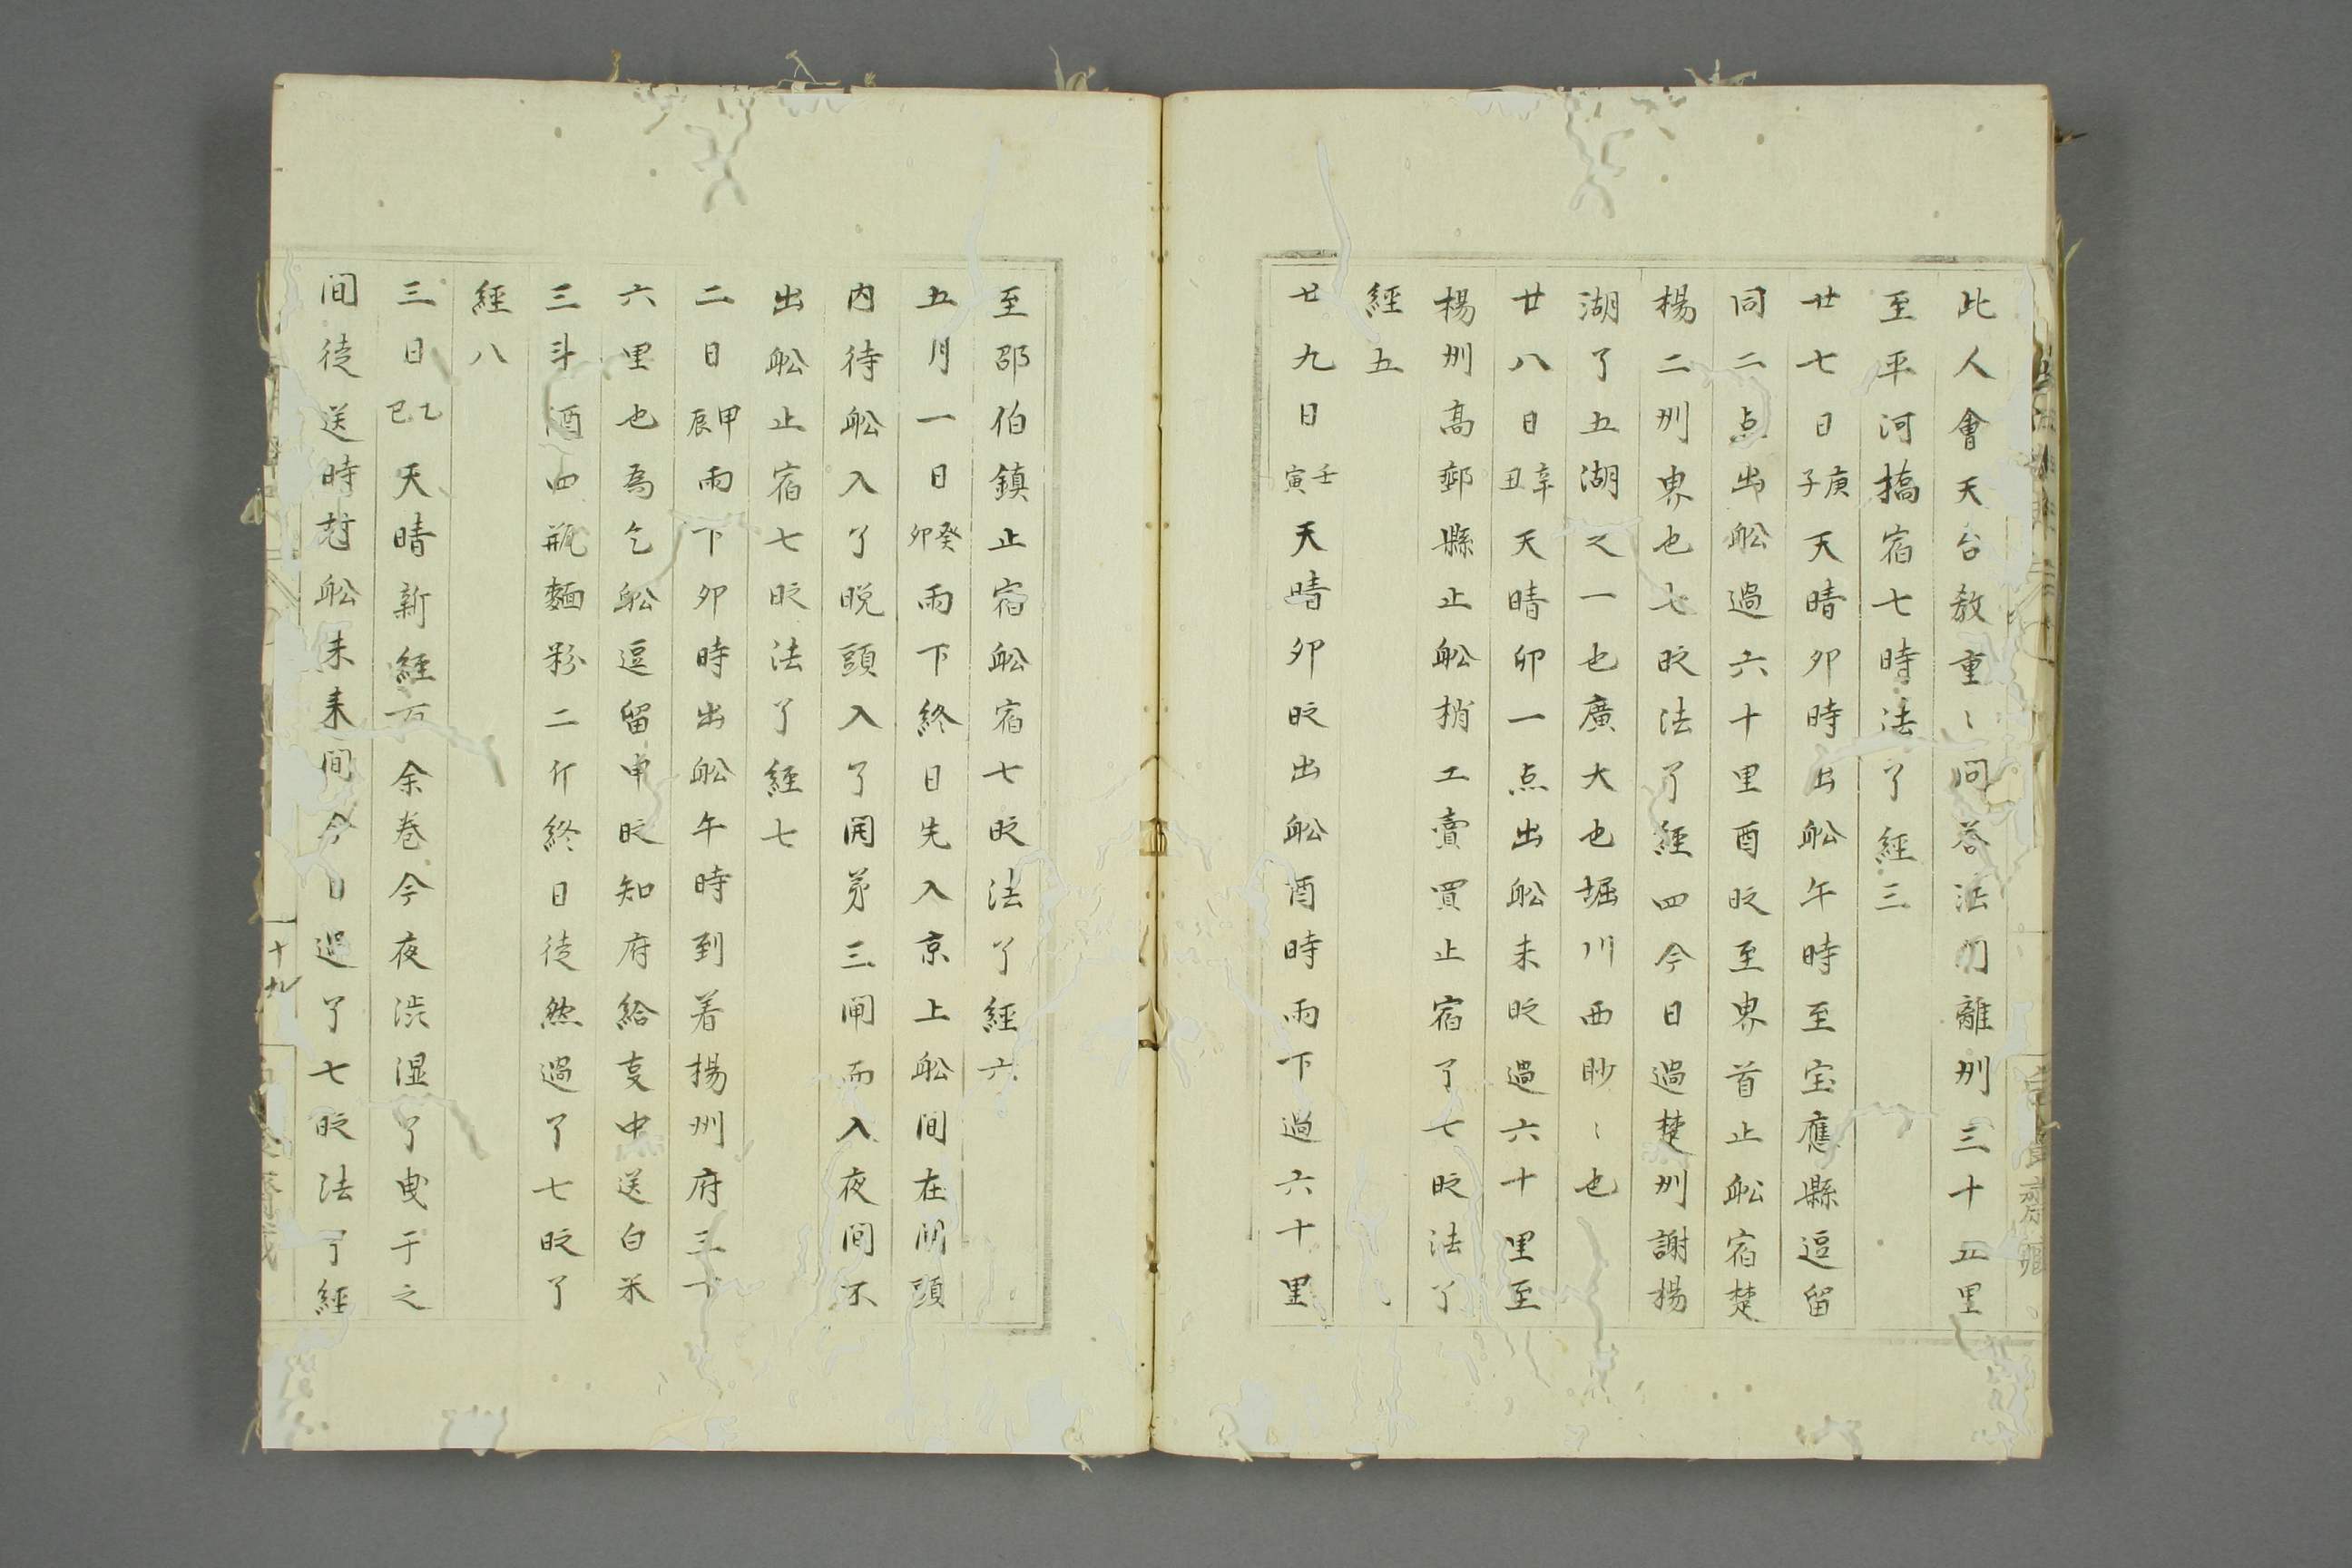 此人會天台教重〻問答法門離州三十五里
至平河橋宿七時法了經三
廿七日庚子天晴卯時出舩午時至宝應縣逗留
同二点出舩過六十里酉时至界首止舩宿楚
楊二州界也七时法了經四今日過楚州謝楊
湖了五湖之一也廣大也堀川西眇〻也
廿八日辛丑天晴卯一点出舩未时過六十里至
楊州高郵縣止舩梢工賣買止宿了七时法了
經五
廿九日壬寅天晴卯时出舩酉時雨下過六十里
至邵伯鎮止宿舩宿七时法了經六
五月一日癸卯雨下終日先入京上舩間在閘頭
内待舩入了晚頭入了開第三閘而入夜間不
出舩止宿七时法了經七
二日甲辰雨下卯時出舩午時到着揚州府三十
六里也為乞舩逗留申时知府給麦中送白米
三斗酒四瓶麵粉二斤終日徒然過了七时了
經八
三日乙巳天晴新經百余巻今夜渋湿了曵于之
間徒送時尅舩未来間今日過了七时法了經
十九